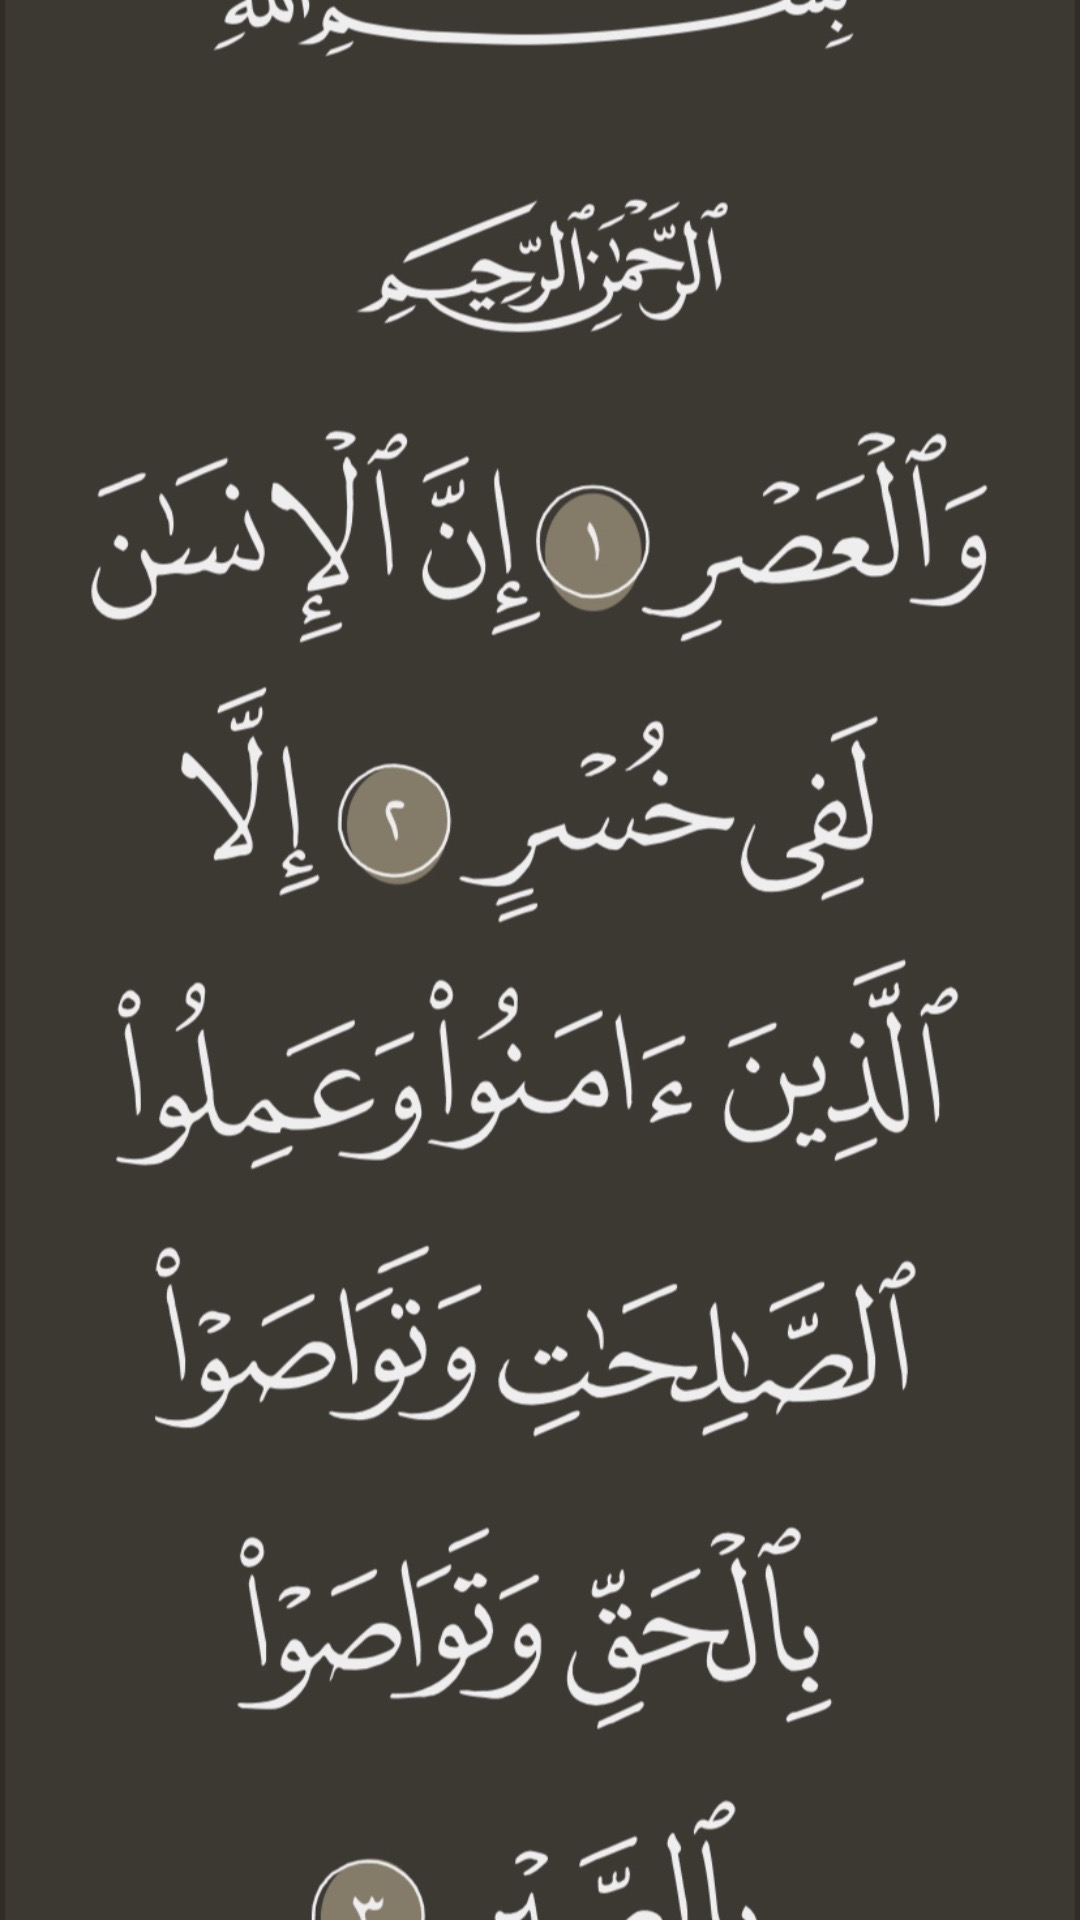 بِسْمِ ٱللَّهِ
ٱلرَّحْمَٰنِ ٱلرَّحِيمِ
وَٱلْعَصْرِ ١ إِنَّ ٱلْإِنسَٰنَ
لَفِى خُسْرٍ ٢ إِلَّا
ٱلَّذِينَ ءَامَنُوا۟ وَعَمِلُوا۟
ٱلصَّٰلِحَٰتِ وَتَوَاصَوْا۟
بِٱلْحَقِّ وَتَوَاصَوْا۟
بِٱلصَّبْرِ ٣